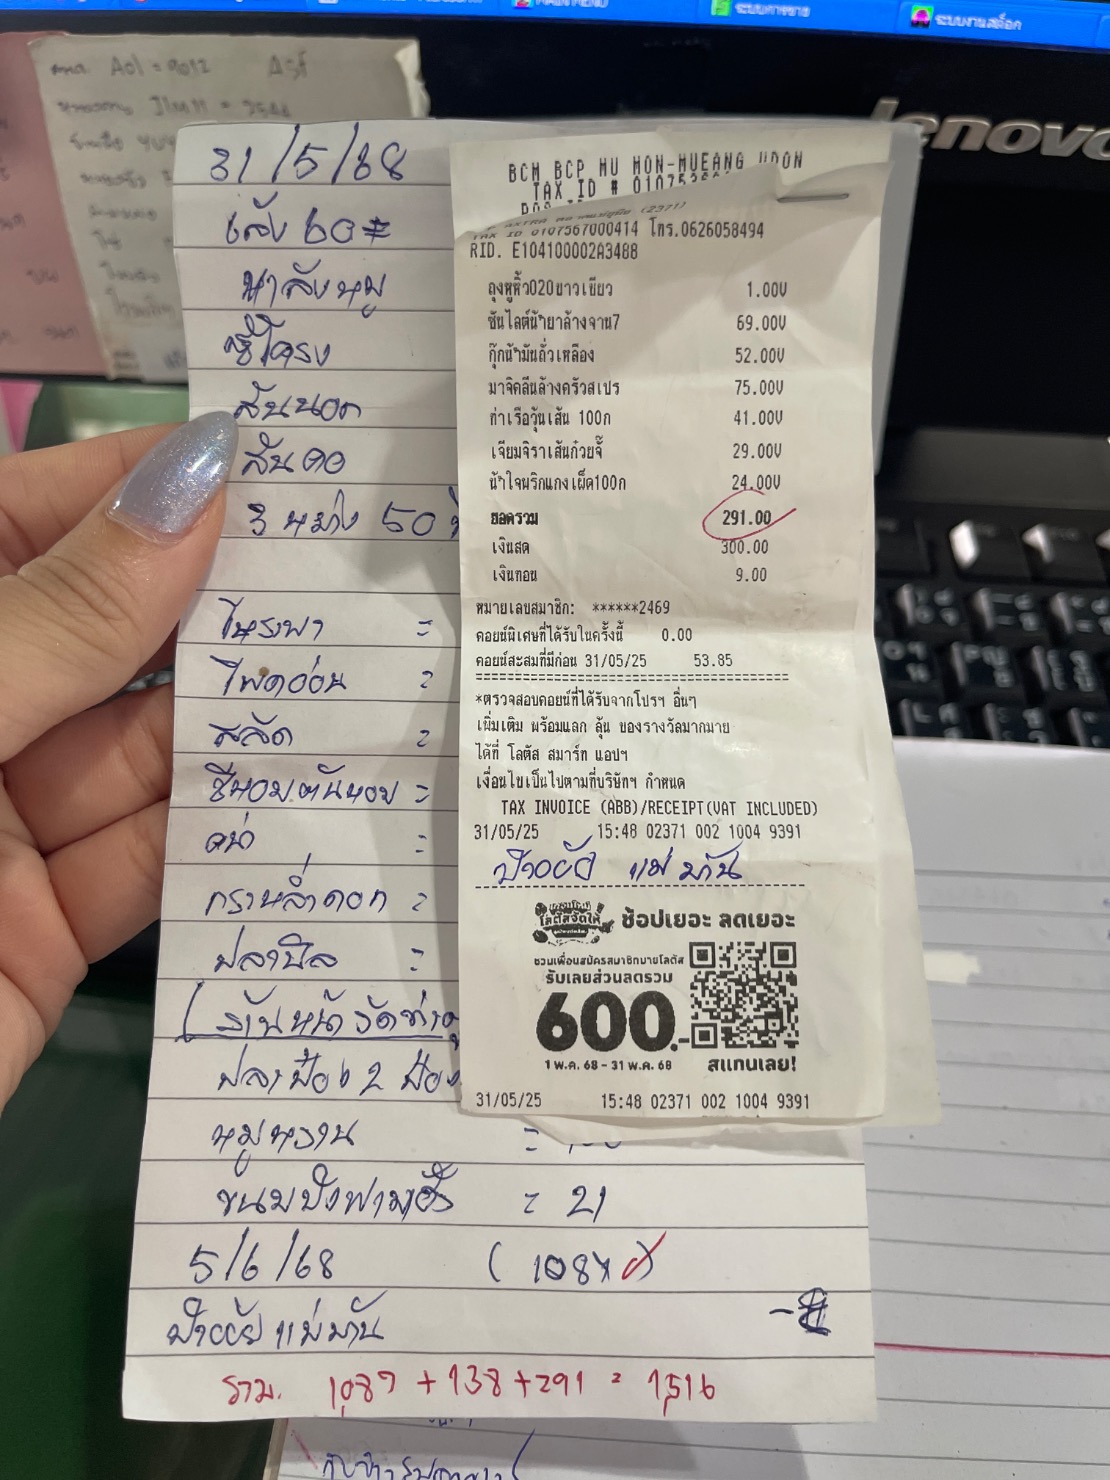 MAIN MENU
ระบบการขาย
ระบบงานสต็อก
lenovo
31/5/68
เล้ง 60#
ซี่โครง
สันนอก
สันคอ
3 หน่าง 50
โหระพา =
โพดอ่อน =
สลัด =
ชีหอมต้นหอม =
คน่า =
กราหล่ำดอก =
ปลานิล =
ปลาป๋อง 2 ป๋อง
หมูหวาน =
ขนมปังฟามเฮ้า = 21
5/6/68 (1087)
ป้าอ้อย แม่มัน
รวม. 1,087 + 138 + 291 = 1,516
BCM BCP MU MON-MUEANG UDON
TAX ID # 0107536
(2371)
TAX ID 0107567000414 โทร.0626058494
RID. E104100002A3488
ถุงหูหิ้ว020ขาวเขียว 1.00V
ซันไลต์น้ำยาล้างจาน7 69.00V
กุ๊กน้ำมันถั่วเหลือง 52.00V
มาจิคลีนล้างครัวสเปร 75.00V
ท่าเรือวุ้นเส้น 100ก 41.00V
เจียมจิราเส้นก๋วยจั๊ 29.00V
น้ำใจพริกแกงเผ็ด100ก 24.00V
ยอดรวม 291.00
เงินสด 300.00
เงินทอน 9.00
หมายเลขสมาชิก: ******2469
คอยน์พิเศษที่ได้รับในครั้งนี้ 0.00
คอยน์สะสมที่มีก่อน 31/05/25 53.85
*ตรวจสอบคอยน์ที่ได้รับจากโปรฯ อื่นๆ
เพิ่มเติม พร้อมแลก ลุ้น ของรางวัลมากมาย
ได้ที่ โลตัส สมาร์ท แอปฯ
เงื่อนไขเป็นไปตามที่บริษัทฯ กำหนด
TAX INVOICE (ABB)/RECEIPT(VAT INCLUDED)
31/05/25 15:48 02371 002 1004 9391
ป้าอ้อย แม่มัน
โลตัสจัดให้ ช้อปเยอะ ลดเยอะ
ชวนเพื่อนสมัครสมาชิกมายโลตัส
รับเลยส่วนลดรวม
600.-
1 พ.ค. 68 - 31 พ.ค. 68 สแกนเลย!
31/05/25 15:48 02371 002 1004 9391